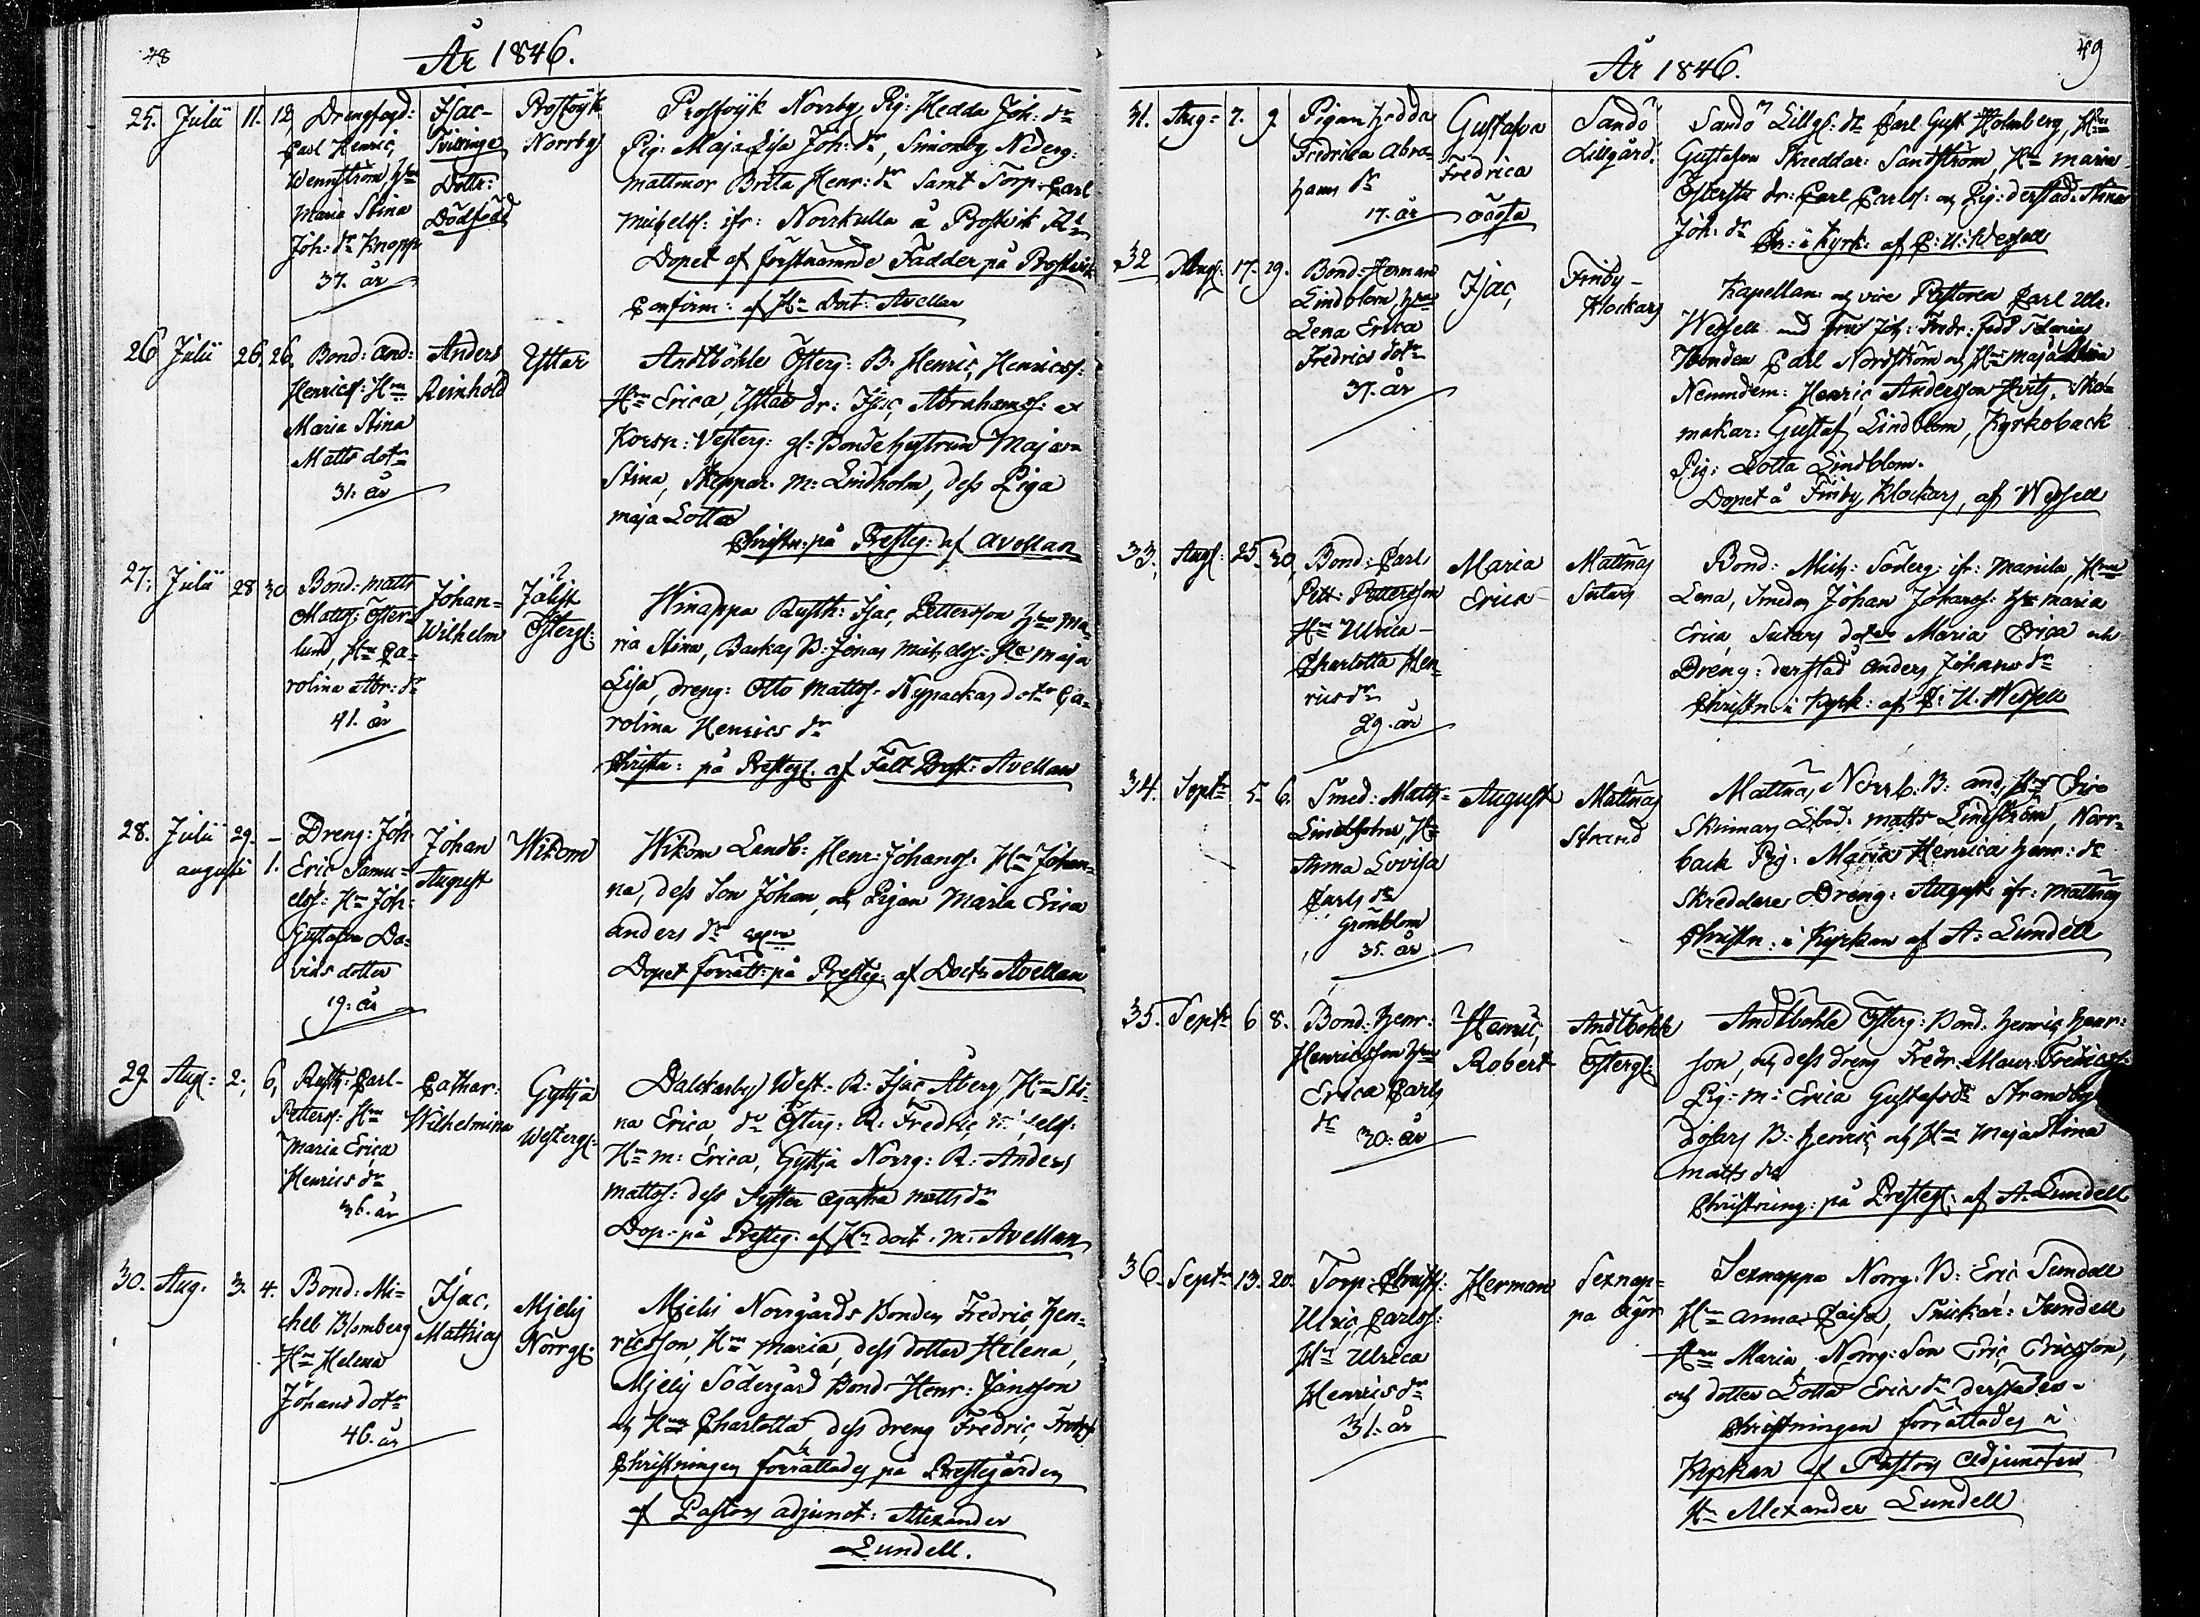 48
År 1846.
25. Julii 11. 12
Drengfogd:
Carl Henric,
Wennström, Hn
Maria Stina
Joh: dr Knopp
37. år
Isac-
Tvillinge
Dottr:
Dödfödd
Prostvik
Norrby
Prostvyk Norrby Pig: Hedda Joh. dr
Pig: Maja Lisa Joh: dr, Simonby Nderg:
mattmor Brita Henr: dr Samt Torp. Carl
Michelss: ifr: Norrkulla å Prostvik
Dopet af förstnämnde Fadder på Prostvik
Confirm: af Hr Doct: Avellan
26 Julii 26. 26.
Bond: And:
Henricss: Hn
Maria Stina
Matts dotr
31. år
Anders
Reinhold
Yttar
Andtböhle Österg: B. Henric, Henricss:
Hn Erica, Yttar dr: Isac Abrahamss: et
Korsn: Vesterg: gl: Bonde Hustrun Maja
Stina, Skeppar. M: Lindholm, dess Piga
Maja Lotta
Christn: på Presteg: af Avellan
27. Julii 28 30
Bond: Matts
Mattss: Öster-
lund, Hn Ca-
rolina Abr: dr
41. år
Johan-
Wilhelm
Jälist
Östergl:
Winappa Rusth: Isac, Pettersson Hn Ma-
ria Stina, Backas B: Jonas Michelss: Hn Maja
Lisa, dreng: Otto Mattss: Nypackas dotr Ca-
rolina Henrics dr
Christn: på Presteg: af Fält Prost: Avellan
28. Julii 29. -
augusti 1.
Dreng: Joh
Eric Samu-
elss: Hn Joh:
Gustafva Da-
vids dotter
19. år
Johan
August
Wikom
Wikom Landb: Henr: Johanss: Hn Johan-
na, dess Son Johan, och Pigan Maria Erica
Anders dr
Dopet förrätt: på Presteg: af Doctr Avellan
29. Aug: 2. 6,
Rusth: Carl-
Petterss: Hn
Maria Erica
Henrics dr
36. år
Cathar:
Wilhelmina
Gyttja
Westergl:
Dalckarby West: R: Isac Åberg, Hn Sti-
na Erica, dr Österg: R: Fredric
Hn M: Erica, Gyttja Norrg: R: Anders
Mattss: dess Syster Agatha Matts dr
Dop: på Presteg: af Hr doct. M: Avellan
30. Aug. 3. 4.
Bond: Mi-
chel Blomberg
Hn Helena
Johans dotr
46. år
Isac,
Mathias
Mjelis
Norrgl:
Mjelis Norrgårds Bonden Fredric, Hen-
ricsson, Hn Maria, dess dotter Helena,
Mjelis Södergård Bond: Henr: Jansson
och Hn Charlotta dess dreng Fredric,
Christningen förrättades på Prestegården
af Pastors adjunct: Alexander
Lundell.
49
År 1846.
31. Aug: 7. 9
Pigan Hedda
Fredrica Abra-
hams dr
17. år
Gustafva
Fredrica
oäkta
Sandö
Lillgård.
Sandö Lillgl: dr Carl Gust Holmberg, Hn
Gustafva Skreddar: Sandström, Hn Maria
dr: Carl Carlss: och Pig: derstäd: Stina
Joh: dr Chr: i Kyrk: af C: U: Wessell
32 Aug: 17. 19.
Bond: Herman
Lindblom, Hn
Lena Erica
Fredrics dotr
37. år
Isac,
Finby-
Klockars
Kapellan och vice Pastoren Carl Ulr:
Wessell med Fru Joh: Fredr: född
Bonden Carl Nordström och Hn Maja Stina
Nemndem: Henric Andersson Hvits, Sko-
makar: Gustaf Lindblom, Kyrkoback
Pig: Lotta Lindblom.
Dopet å Finby, Klockars, af Wessell
33. Aug: 25. 30.
Bond: Carl
Pett: Pettersson
Hn Ulrica-
Charlotta Hen-
rics dr
29. år
Maria
Erica
Mattnäs
Sutars
Bond: Mich: Söderg: ifr: Manila, Hn
Lena, Smeden Johan Johanss: Hn Maria
Erica, Sutars dotter Maria Erica och
Dreng: derstäd Anders Johans dr
Christn: i Kyrk: af C: U. Wessell
34. Septr 5. 6.
Smed: Matts
Lindholm, Hn
Anna Lovisa
Carls dr
Grönblom
35. år
August
Mattnäs
Strand
Mattnäs Norrb. B: And, Hn
Skinnars Matts Lindström, Norr-
back Pig: Maria Henrica Henr: dr
Skreddare Dreng: August ifr: Mattnäs
Christn: i Kyrkan af A: Lundell
35. Septr 6 8.
Bond: Henr:
Henricsson Hn
Erica Carls
dr 30. år
Henric,
Robert
Andtböhle
Östergl:
Andtböhle Österg: Bond: Henric Henr:
son, och dess dreng Fredr: Maur: Fredricss:
Pig: M: Erica Gustafs dr Strandby
B: Henric och Hn Maja Stina
Matts dr
Christning: på Presteg: af A: Lundell
36. Septr 13. 20.
Torp: Christ:
Ulric, Carlss:
Hn Ulrica
Henrics dr
31. år
Herman
Sexnap-
pa ägor
Sexnappa Norrg: B: Eric Sundell
Hn Anna Caisa, Snickar: Sundell
Hn Maria, Norrg: Son Eric Ericsson,
och dotter Lotta Erics dr derstädes.
Christningen förrättades i
Kyrkan af Pastors Adjuncten
Hr Alexander Lundell